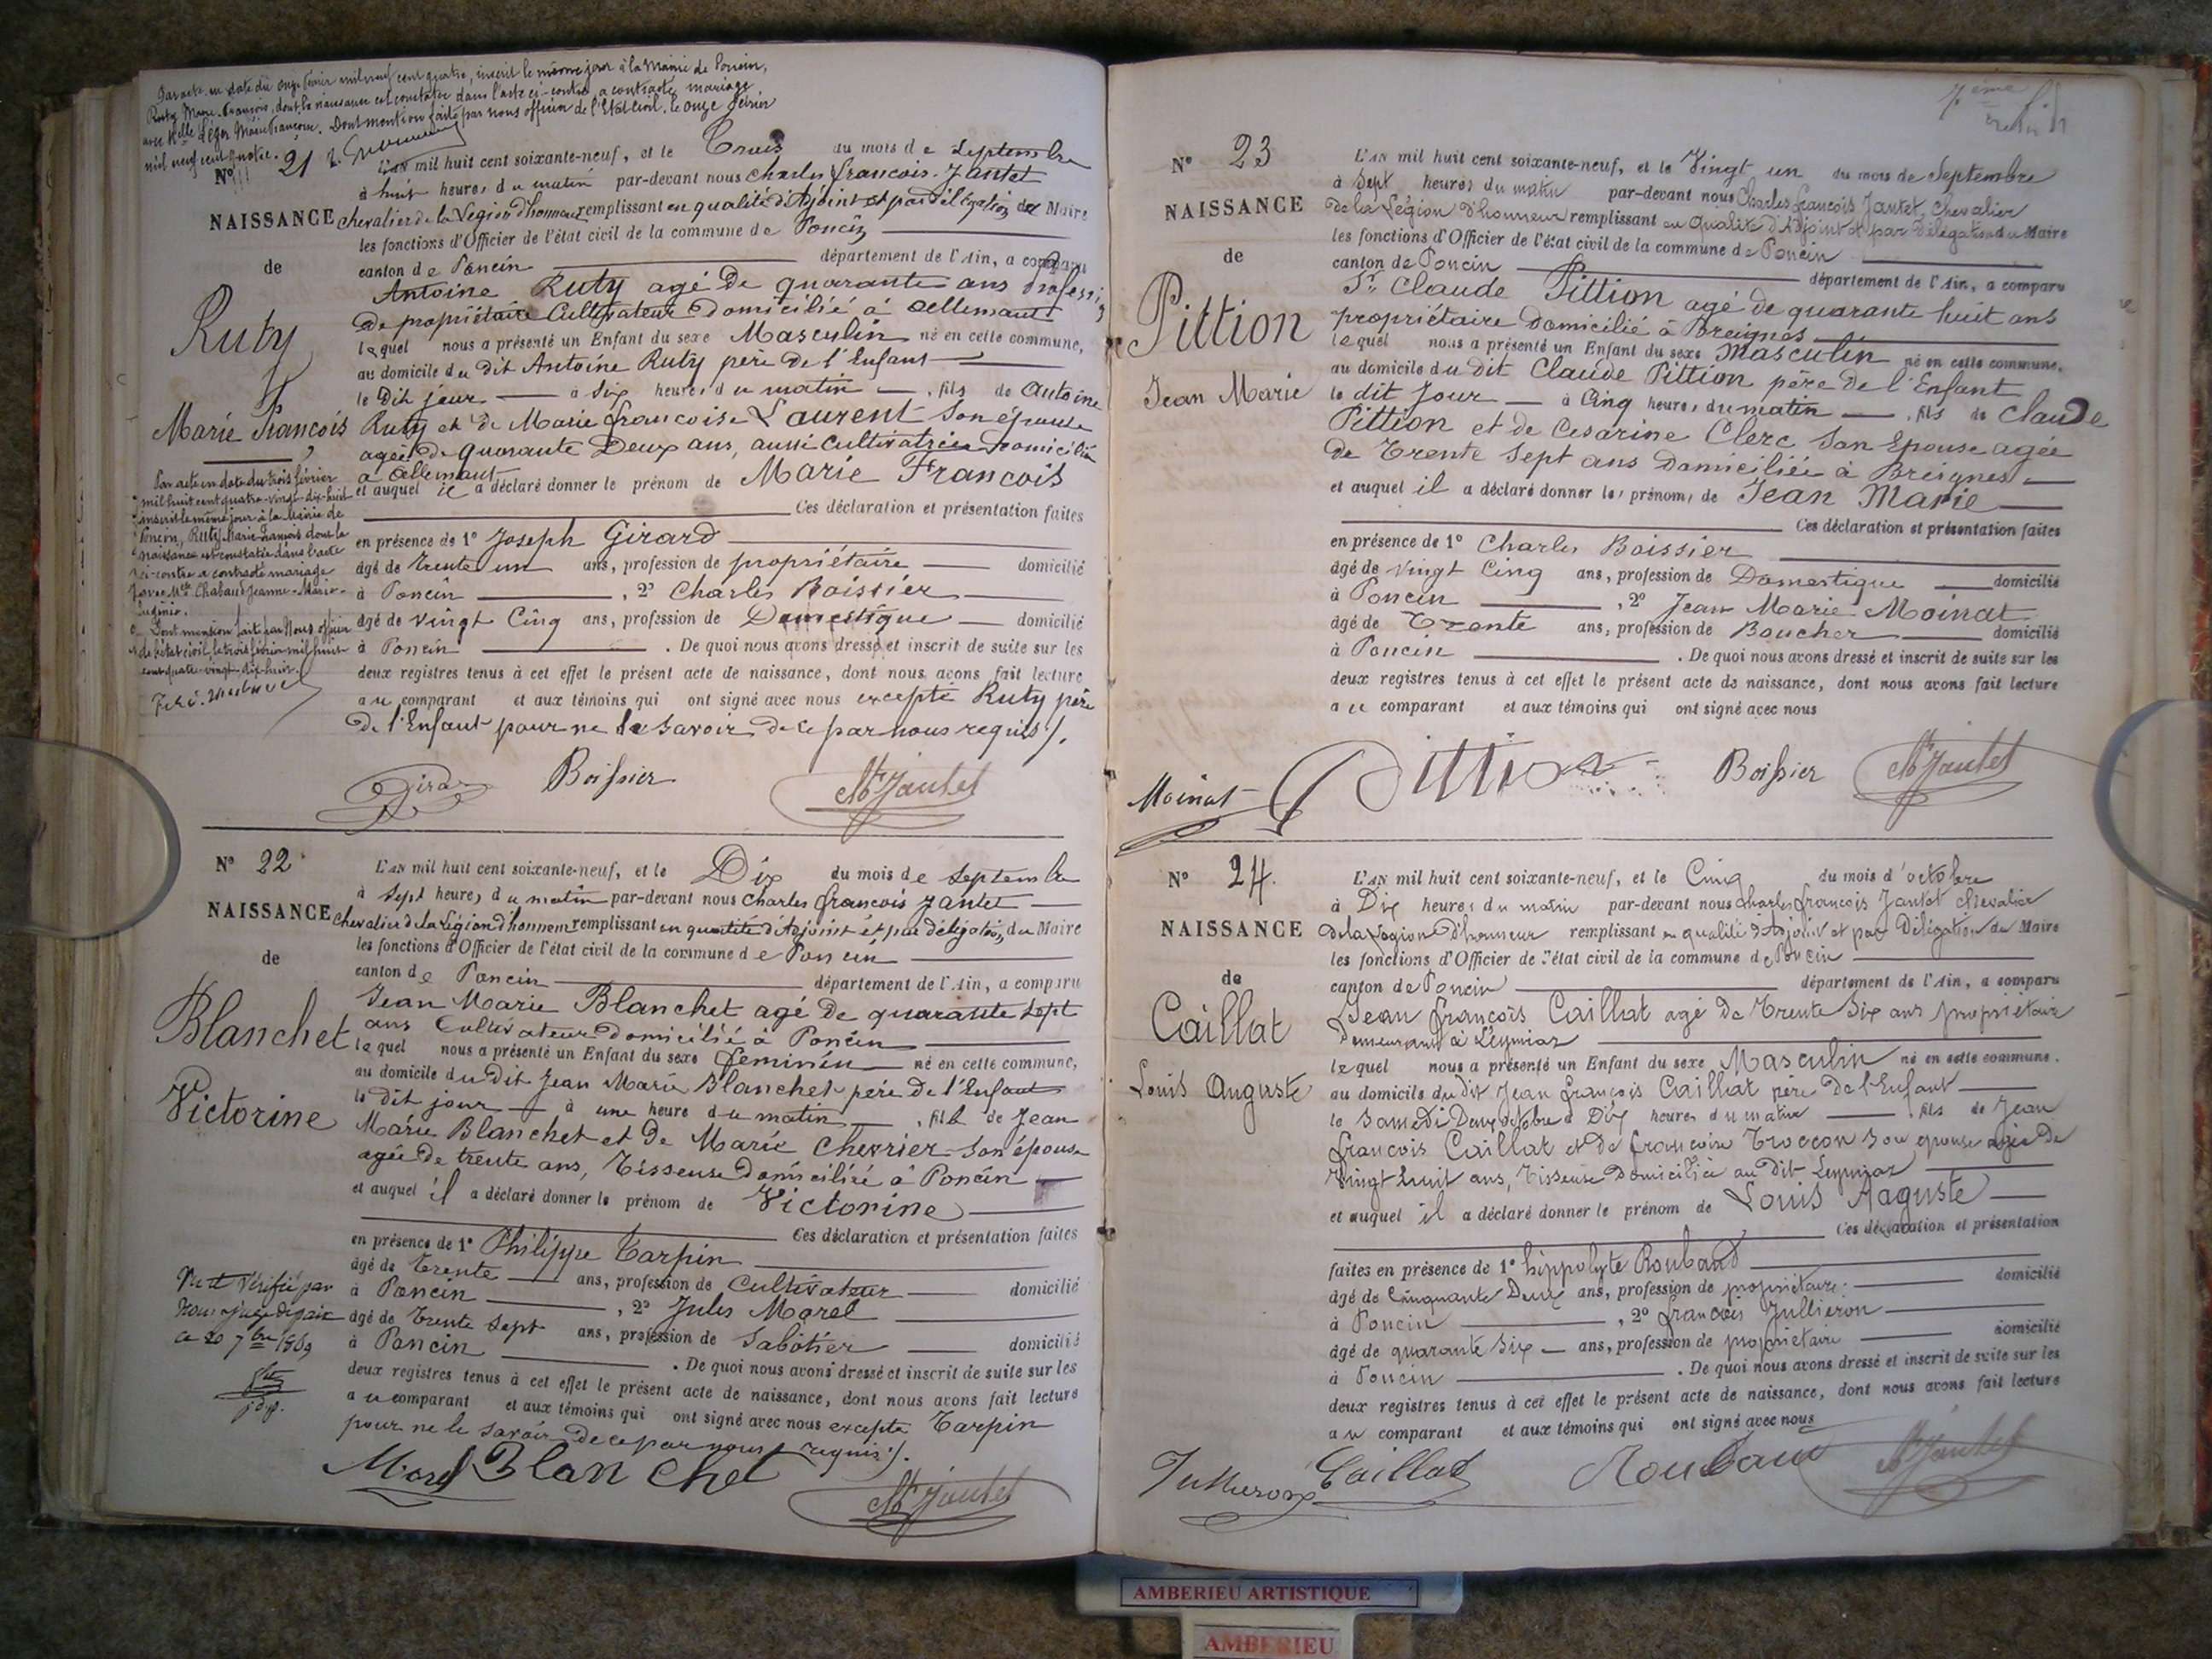 Par acte en date du onze février mil neuf cent quatre, inscrit le même jour à la Mairie de Poncin,
Ruty Marie-François, dont la naissance est constatée dans l'acte ci-contre, a contracté mariage
avec Melle Léger Marie Françoise. Dont mention faite par nous officier de l'Etat Civil, le onze février
mil neuf cent quatre.
N° 21
NAISSANCE
de
Ruty
Marie François
Par acte en date du trois février
mil huit cent quatre-vingt-dix-huit
inscrit le même jour à la Mairie de
Poncin, Ruty Marie-François dont la
naissance est constatée dans l'acte
ci-contre a contracté mariage
avec Melle Chabaud Jeanne-Marie-
Eugénie.
Dont mention faite par Nous officier
de l'état civil, le trois février mil huit
cent quatre-vingt-dix-huit.
L'AN mil huit cent soixante-neuf, et le Trois du mois de Septembre
à huit heures du matin par-devant nous Charles françois Jantet
Chevalier de la Légion d'honneur remplissant en qualité d'Adjoint et par délégation du Maire
les fonctions d'Officier de l'état civil de la commune de Poncin
canton de Poncin département de l'Ain, a comparu
Antoine Ruty agé de quarante ans
de propriétaire Cultivateur Domicilié à Allemant
lequel nous a présenté un Enfant du sexe Masculin né en cette commune,
au domicile du dit Antoine Ruty père de l'Enfant
le dit jour à Six heures du matin , fils de Antoine
Ruty et de Marie francoise Laurent Son épouse
agée de quarante Deux ans, aussi cultivatrice Domiciliée
a allemant
et auquel il a déclaré donner le prénom de Marie François
Ces déclaration et présentation faites
en présence de 1° Joseph Girard
âgé de trente un ans, profession de propriétaire domicilié
à Poncin , 2° Charles Boissier
âgé de Vingt Cinq ans, profession de Domestique domicilié
à Poncin . De quoi nous avons dressé et inscrit de suite sur les
deux registres tenus à cet effet le présent acte de naissance, dont nous avons fait lecture
au comparant et aux témoins qui ont signé avec nous excepté Ruty père
de l'Enfant pour ne le savoir de ce par nous requis /.
Girard Boissier Ch Jantet
N° 22
NAISSANCE
de
Blanchet
Victorine
Vu et Vérifié par
Nous juge de paix
ce 20 7bre 1869
L'AN mil huit cent soixante-neuf, et le Dix du mois de Septembre
à Sept heures du matin par-devant nous Charles françois Jantet
Chevalier de la Légion d'honneur remplissant en qualité d'Adjoint et par délégation, du Maire
les fonctions d'Officier de l'état civil de la commune de Poncin
canton de Poncin département de l'Ain, a comparu
Jean Marie Blanchet agé de quarante Sept
ans Cultivateur domicilié à Poncin
lequel nous a présenté un Enfant du sexe féminin né en cette commune,
au domicile du dit Jean Marie Blanchet père de l'Enfant
le dit jour à une heure du matin , fille de Jean
Marie Blanchet et de Marie Chevrier Son épouse
agée de trente ans, Tisseuse Domiciliée à Poncin
et auquel il a déclaré donner le prénom de Victorine
Ces déclaration et présentation faites
en présence de 1° Philippe Tarpin
âgé de Trente ans, profession de Cultivateur domicilié
à Poncin , 2° Jules Morel
âgé de Trente Sept ans, profession de Sabotier domicilié
à Poncin . De quoi nous avons dressé et inscrit de suite sur les
deux registres tenus à cet effet le présent acte de naissance, dont nous avons fait lecture
au comparant et aux témoins qui ont signé avec nous excepte Tarpin
pour ne le savoir de ce par nous requis /.
Morel Blanchet Ch Jantet
N° 23
NAISSANCE
de
Pittion
Jean Marie
L'AN mil huit cent soixante-neuf, et le Vingt un du mois de Septembre
à Sept heures du matin par-devant nous Charles françois Jantet, Chevalier
de la Légion d'honneur remplissant en Qualité d'Adjoint et par Délégation du Maire
les fonctions d'Officier de l'état civil de la commune de Poncin
canton de Poncin département de l'Ain, a comparu
Sr Claude Pittion agé de quarante huit ans
propriétaire Domicilié à Breignes
lequel nous a présenté un Enfant du sexe Masculin né en cette commune,
au domicile du dit Claude Pittion père de l'Enfant
le dit Jour à Cinq heures du matin , fils de Claude
Pittion et de Cesarine Clerc Son Epouse agée
de Trente Sept ans Domiciliée à Breignes
et auquel il a déclaré donner les prénoms de Jean Marie
Ces déclaration et présentation faites
en présence de 1° Charles Boissier
âgé de Vingt Cinq ans, profession de Domestique domicilié
à Poncin , 2° Jean Marie Moinat
âgé de Trente ans, profession de Boucher domicilié
à Poncin . De quoi nous avons dressé et inscrit de suite sur les
deux registres tenus à cet effet le présent acte de naissance, dont nous avons fait lecture
au comparant et aux témoins qui ont signé avec nous
Moinat Pittion Boissier Ch Jantet
N° 24.
NAISSANCE
de
Caillat
Louis Auguste
L'AN mil huit cent soixante-neuf, et le Cinq du mois d'octobre
à Dix heures du matin par-devant nous Charles françois Jantet chevalier
de la Légion d'honneur remplissant en qualité d'Adjoint et par Délégation du Maire
les fonctions d'Officier de l'état civil de la commune de Poncin
canton de Poncin département de l'Ain, a comparu
Jean françois Caillat agé de Trente Six ans propriétaire
Demeurant à Leymiat
lequel nous a présenté un Enfant du sexe Masculin né en cette commune.
au domicile du dit Jean françois Caillat père de l'Enfant
le Samedi Deux octobre à Dix heures du matin fils de Jean
françois Caillat et de françoise Troccon Son épouse agée de
Vingt huit ans, Tisseuse Domiciliée au dit Leymiat
et auquel il a déclaré donner le prénom de Louis Auguste
Ces déclaration et présentation
faites en présence de 1° hippolyte Roubaud
âgé de Cinquante Deux ans, profession de propriétaire domicilié
à Poncin , 2° françois Jullieron
âgé de quarante Six ans, profession de propriétaire domicilié
à Poncin . De quoi nous avons dressé et inscrit de suite sur les
deux registres tenus à cet effet le présent acte de naissance, dont nous avons fait lecture
au comparant et aux témoins qui ont signé avec nous
Jullieron Caillat Roubaud Ch Jantet
AMBERIEU ARTISTIQUE
AMBERIEU